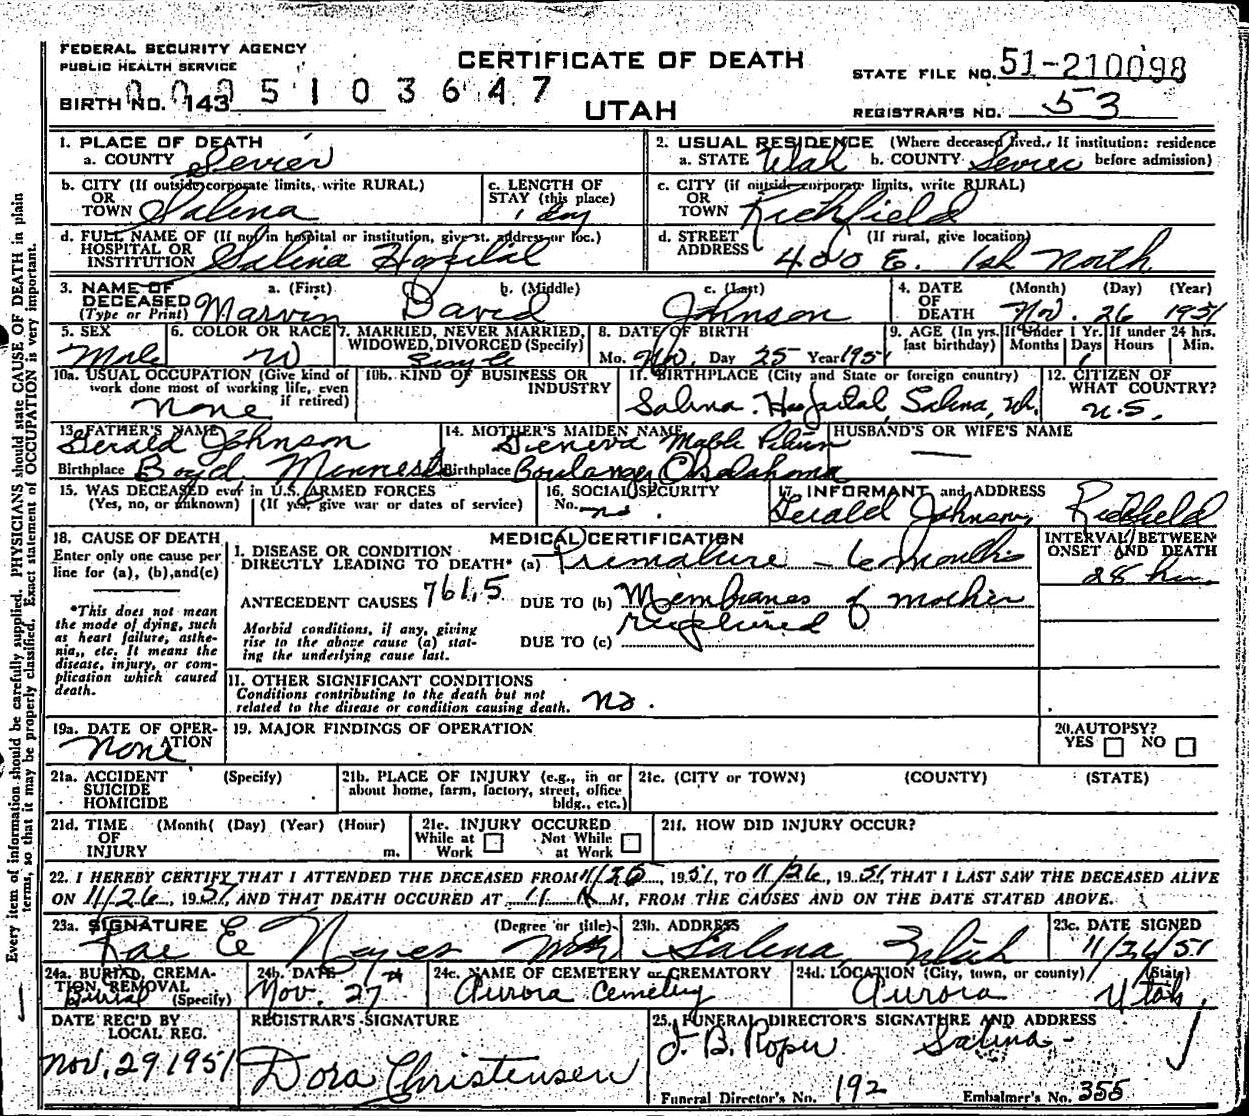 FEDERAL SECURITY AGENCY
PUBLIC HEALTH SERVICE
CERTIFICATE OF DEATH
STATE FILE NO. 51-210098
BIRTH NO. 143 5 1 0 3 6 4 7
UTAH
REGISTRAR'S NO. 53
1. PLACE OF DEATH
a. COUNTY Sevier
2. USUAL RESIDENCE (Where deceased lived. If institution: residence before admission)
a. STATE Utah b. COUNTY Sevier
b. CITY (If outside corporate limits, write RURAL) OR TOWN Salina
c. LENGTH OF STAY (this place) 1 day
c. CITY (if outside corporate limits, write RURAL) OR TOWN Richfield
d. FULL NAME OF (If not in hospital or institution, give st. address or loc.) HOSPITAL OR INSTITUTION Salina Hospital
d. STREET ADDRESS (If rural, give location) 400 E. 1st North
3. NAME OF DECEASED (Type or Print)
a. (First) b. (Middle) c. (Last)
Marvin David Johnson
4. DATE OF DEATH (Month) (Day) (Year)
Nov. 26 1951
5. SEX Male
6. COLOR OR RACE W
7. MARRIED, NEVER MARRIED, WIDOWED, DIVORCED (Specify) Single
8. DATE OF BIRTH
Mo. Nov. Day 25 Year 1951
9. AGE (In yrs. last birthday) If Under 1 Yr. Months Days 1 If under 24 hrs. Hours Min.
10a. USUAL OCCUPATION (Give kind of work done most of working life, even if retired) none
10b. KIND OF BUSINESS OR INDUSTRY
11. BIRTHPLACE (City and State or foreign country)
Salina Hospital, Salina, Ut.
12. CITIZEN OF WHAT COUNTRY? U.S.
13. FATHER'S NAME
Gerald Johnson
Birthplace Boyd, Minnesota
14. MOTHER'S MAIDEN NAME
Geneva Mable
Birthplace Boulanger Oklahoma
HUSBAND'S OR WIFE'S NAME
15. WAS DECEASED ever in U.S. ARMED FORCES
(Yes, no, or unknown) (If yes, give war or dates of service)
16. SOCIAL SECURITY
No. no.
17. INFORMANT and ADDRESS
Gerald Johnson, Richfield
18. CAUSE OF DEATH
Enter only one cause per line for (a), (b), and (c)
*This does not mean the mode of dying, such as heart failure, asthenia, etc. It means the disease, injury, or complication which caused death.
MEDICAL CERTIFICATION
INTERVAL BETWEEN ONSET AND DEATH
I. DISEASE OR CONDITION DIRECTLY LEADING TO DEATH* (a) Premature - 6 months
28 hrs
ANTECEDENT CAUSES 761.5 DUE TO (b) Membranes of mother
ruptured
Morbid conditions, if any, giving rise to the above cause (a) stating the underlying cause last. DUE TO (c)
II. OTHER SIGNIFICANT CONDITIONS
Conditions contributing to the death but not related to the disease or condition causing death. no.
19a. DATE OF OPERATION None
19. MAJOR FINDINGS OF OPERATION
20. AUTOPSY?
YES NO
21a. ACCIDENT SUICIDE HOMICIDE (Specify)
21b. PLACE OF INJURY (e.g., in or about home, farm, factory, street, office bldg., etc.)
21c. (CITY or TOWN) (COUNTY) (STATE)
21d. TIME OF INJURY (Month( (Day) (Year) (Hour) m.
21e. INJURY OCCURED
While at Work Not While at Work
21f. HOW DID INJURY OCCUR?
22. I HEREBY CERTIFY THAT I ATTENDED THE DECEASED FROM 11/25, 1951, TO 11/26, 1951, THAT I LAST SAW THE DECEASED ALIVE
ON 11/26, 1951, AND THAT DEATH OCCURED AT 11 A M, FROM THE CAUSES AND ON THE DATE STATED ABOVE.
23a. SIGNATURE (Degree or title)
Rae E Noyes MD
23b. ADDRESS
Salina, Utah
23c. DATE SIGNED
11/26/51
24a. BURIAL, CREMATION, REMOVAL (Specify) Burial
24b. DATE
Nov. 27
24c. NAME OF CEMETERY or CREMATORY
Aurora Cemetery
24d. LOCATION (City, town, or county) (State)
Aurora Utah
DATE REC'D BY LOCAL REG.
Nov. 29 1951
REGISTRAR'S SIGNATURE
Dora Christensen
25. FUNERAL DIRECTOR'S SIGNATURE AND ADDRESS
J. B. Roper Salina
Funeral Director's No. 192 Embalmer's No. 355
Every item of information should be carefully supplied. PHYSICIANS should state CAUSE OF DEATH in plain
terms, so that it may be properly classified. Exact statement of OCCUPATION is very important.